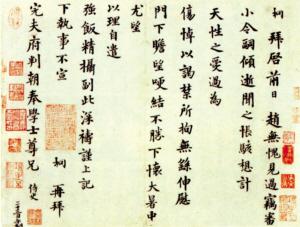 栒 拜啓前日趙無愧見過竊審
小令嗣傾逝聞之悵駭想計
天性之愛過為
傷悼以謁禁所拘無繇伸慰
門下瞻望哽結不勝下懷大暑申
尤望
以理自遣
強飯精攝副此深禱謹上記
下執事不宣
栒 再拜
完夫府判朝奉學士尊兄 侍史